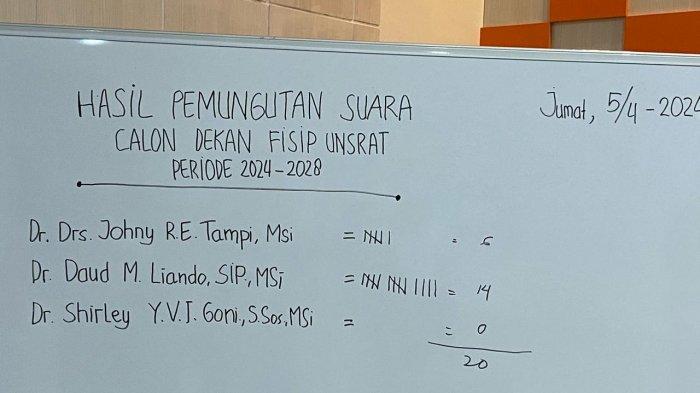 HASIL PEMUNGUTAN SUARA
CALON DEKAN FISIP UNSRAT
PERIODE 2024-2028
Jumat, 5/4-2024
Dr. Drs. Johny R.E. Tampi, Msi = 𝍸| = 6
Dr. Daud M. Liando, SIP., MSi = 𝍸 𝍸 |||| = 14
Dr. Shirley Y.V.I. Goni., S.Sos, MSi = = 0
20